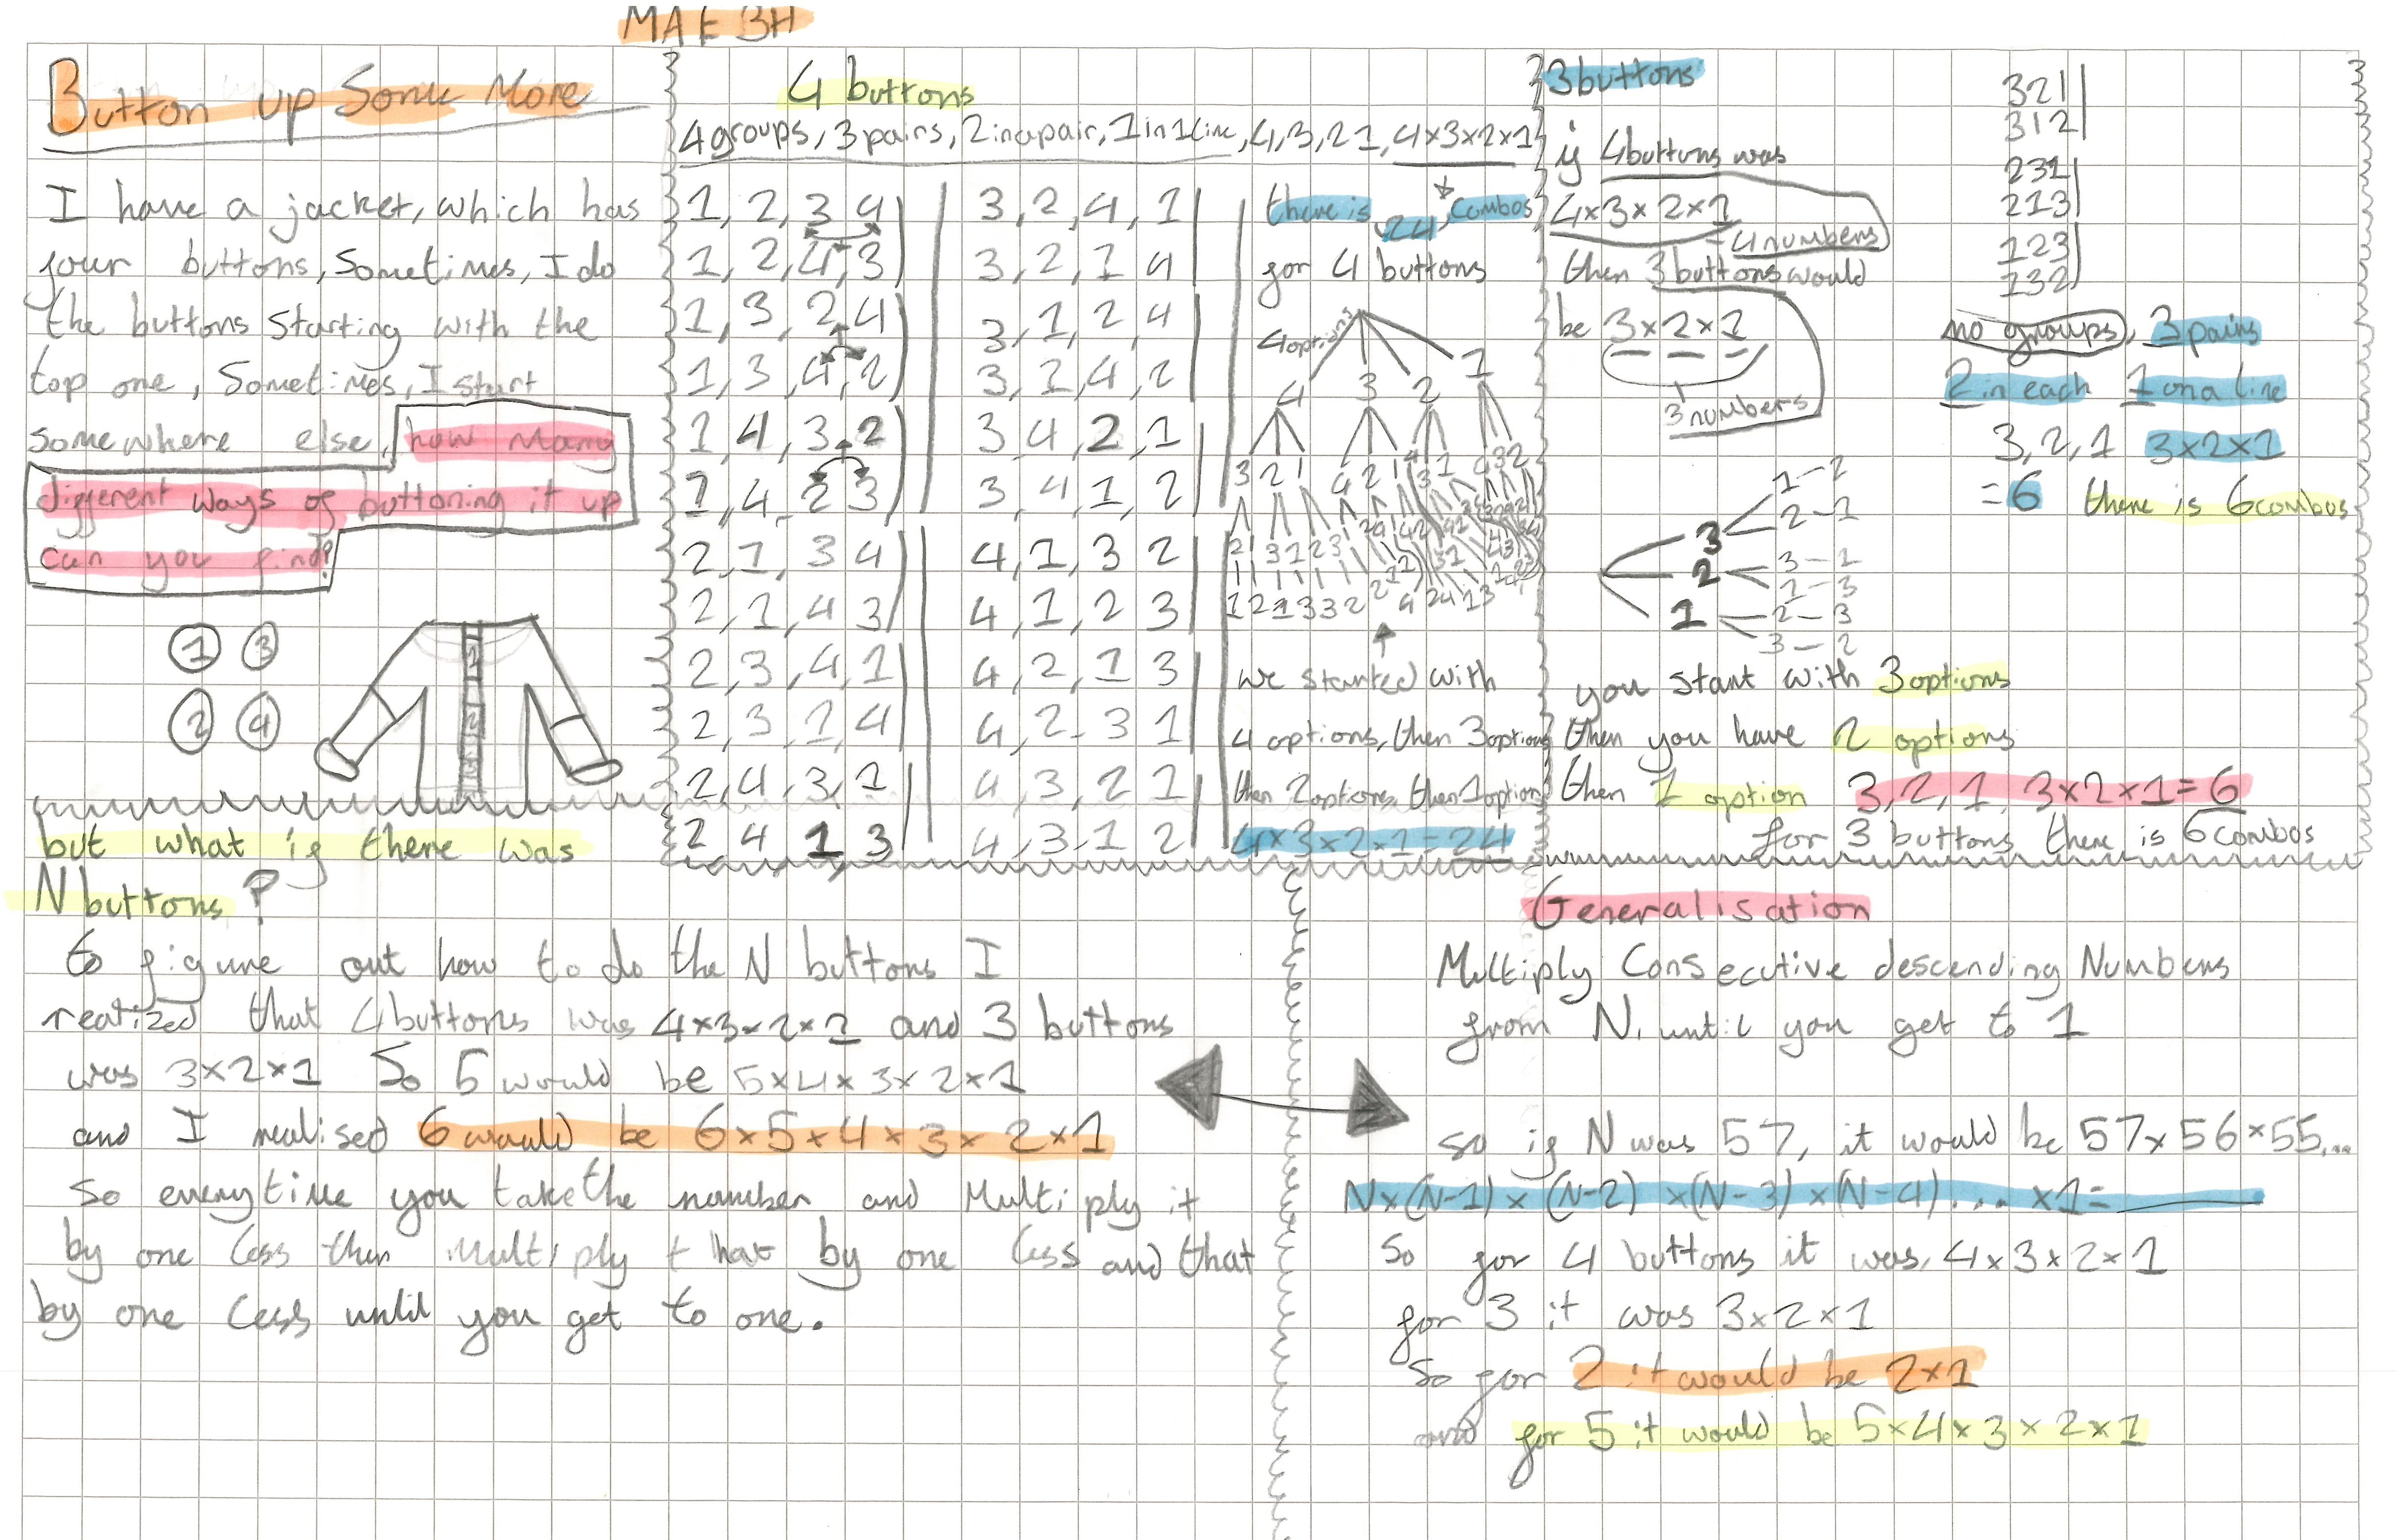 MAE 3H
Button up Some More
I have a jacket, which has
four buttons, Sometimes, I do
the buttons starting with the
top one, Sometimes, I start
somewhere else, how many
different ways of buttoning it up
can you find?
1 3
2 4
4 buttons
4 groups, 3 pairs, 2 in a pair, 1 in 1 line, 4, 3, 2 1, 4×3×2×1
1, 2, 3 4
1, 2, 4, 3
1, 3, 2, 4
1, 3, 4, 2
1, 4, 3, 2
1, 4, 2 3
2, 1, 3 4
2, 1, 4 3
2, 3, 4, 1
2, 3, 1, 4
2, 4, 3, 1
2 4 1, 3
3, 2, 4, 1
3, 2, 1 4
3, 1, 2, 4
3, 1, 4, 2
3, 4, 2, 1
3, 4, 1, 2
4, 1, 3 2
4, 1, 2 3
4, 2, 1 3
4, 2, 3 1
4, 3, 2 1
4, 3, 1 2
there is 24 combos
for 4 buttons
4 options
4 3 2 1
3 2 1 4 2 1 4 3 1 4 3 2
we started with
4 options, then 3 options
then 2 options, then 1 option
4×3×2×1=24
3 buttons
if 4 buttons was
4×3×2×1
4 numbers
then 3 buttons would
be 3×2×1
3 numbers
321
312
231
213
123
132
no groups, 3 pairs
2 in each 1 on a line
3, 2, 1 3×2×1
=6 there is 6 combos
3 1–2
2–1
2 3–1
1–3
1 2–3
3–2
you start with 3 options
then you have 2 options
then 1 option 3, 2, 1, 3×2×1=6
for 3 buttons there is 6 combos
but what if there was
N buttons?
to figure out how to do the N buttons I
realized that 4 buttons was 4×3×2×1 and 3 buttons
was 3×2×1 So 5 would be 5×4×3×2×1
and I realised 6 would be 6×5×4×3×2×1
So everytime you take the number and Multiply it
by one less then Multiply that by one less and that
by one less until you get to one.
Generalisation
Multiply Consecutive descending Numbers
from N, until you get to 1
so if N was 57, it would be 57×56×55...
N×(N-1)×(N-2)×(N-3)×(N-4).... ×1=
So for 4 buttons it was, 4×3×2×1
for 3 it was 3×2×1
So for 2 it would be 2×1
and for 5 it would be 5×4×3×2×1